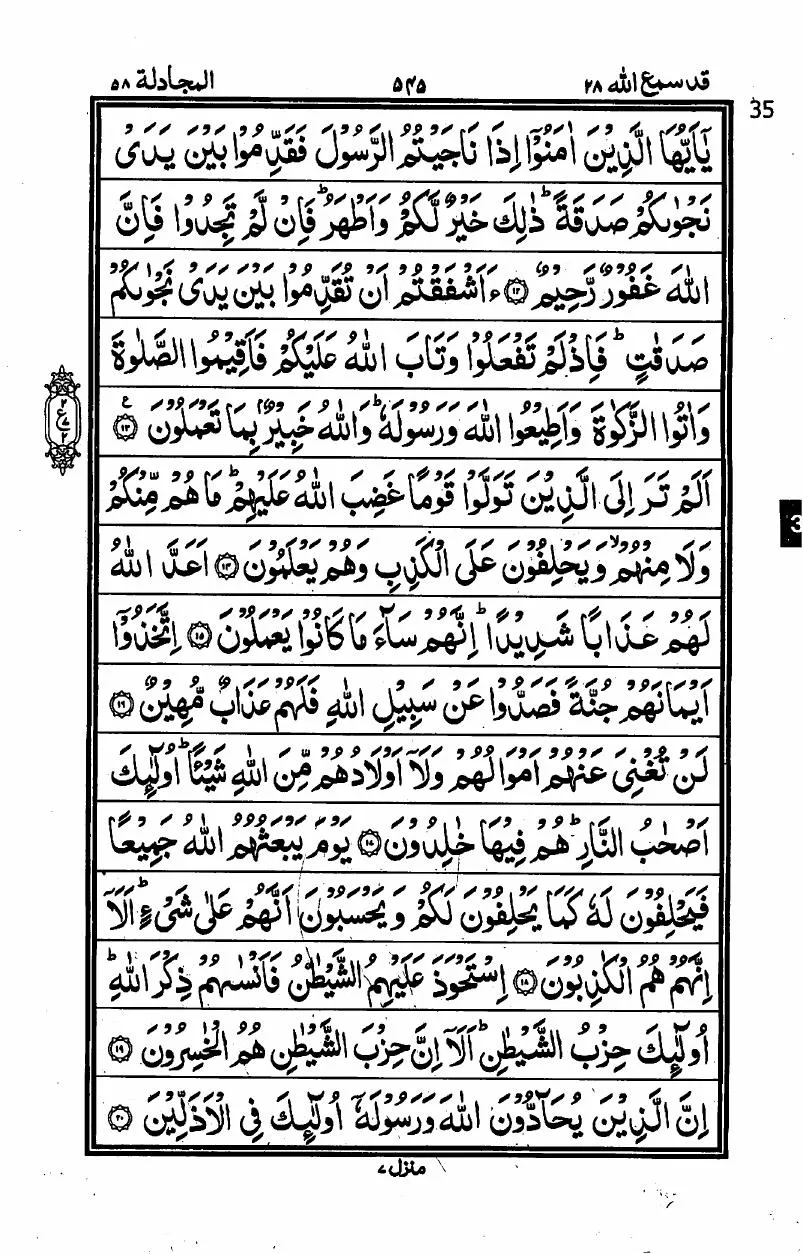 قد سمع الله ٢٨
٥٤٥
المجادلة ٥٨
35
يٰۤاَيُّهَا الَّذِيْنَ اٰمَنُوْۤا اِذَا نَاجَيْتُمُ الرَّسُوْلَ فَقَدِّمُوْا بَيْنَ يَدَىْ
نَجْوٰىكُمْ صَدَقَةً ؕ ذٰلِكَ خَيْرٌ لَّكُمْ وَاَطْهَرُ ؕ فَاِنْ لَّمْ تَجِدُوْا فَاِنَّ
اللّٰهَ غَفُوْرٌ رَّحِيْمٌ ﴿۱۲﴾ ءَاَشْفَقْتُمْ اَنْ تُقَدِّمُوْا بَيْنَ يَدَىْ نَجْوٰىكُمْ
صَدَقٰتٍ ؕ فَاِذْ لَمْ تَفْعَلُوْا وَتَابَ اللّٰهُ عَلَيْكُمْ فَاَقِيْمُوا الصَّلٰوةَ
وَاٰتُوا الزَّكٰوةَ وَاَطِيْعُوا اللّٰهَ وَرَسُوْلَهٗ ؕ وَاللّٰهُ خَبِيْرٌۢ بِمَا تَعْمَلُوْنَ ﴿۱۳﴾ ع
اَلَمْ تَرَ اِلَى الَّذِيْنَ تَوَلَّوْا قَوْمًا غَضِبَ اللّٰهُ عَلَيْهِمْ ؕ مَا هُمْ مِّنْكُمْ
وَلَا مِنْهُمْ ۙ وَيَحْلِفُوْنَ عَلَى الْكَذِبِ وَهُمْ يَعْلَمُوْنَ ﴿۱۴﴾ اَعَدَّ اللّٰهُ
لَهُمْ عَذَابًا شَدِيْدًا ؕ اِنَّهُمْ سَآءَ مَا كَانُوْا يَعْمَلُوْنَ ﴿۱۵﴾ اِتَّخَذُوْۤا
اَيْمَانَهُمْ جُنَّةً فَصَدُّوْا عَنْ سَبِيْلِ اللّٰهِ فَلَهُمْ عَذَابٌ مُّهِيْنٌ ﴿۱۶﴾
لَنْ تُغْنِىَ عَنْهُمْ اَمْوَالُهُمْ وَلَاۤ اَوْلَادُهُمْ مِّنَ اللّٰهِ شَيْئًا ؕ اُولٰٓئِكَ
اَصْحٰبُ النَّارِ ؕ هُمْ فِيْهَا خٰلِدُوْنَ ﴿۱۷﴾ يَوْمَ يَبْعَثُهُمُ اللّٰهُ جَمِيْعًا
فَيَحْلِفُوْنَ لَهٗ كَمَا يَحْلِفُوْنَ لَكُمْ وَيَحْسَبُوْنَ اَنَّهُمْ عَلٰى شَىْءٍ ؕ اَلَاۤ
اِنَّهُمْ هُمُ الْكٰذِبُوْنَ ﴿۱۸﴾ اِسْتَحْوَذَ عَلَيْهِمُ الشَّيْطٰنُ فَاَنْسٰىهُمْ ذِكْرَ اللّٰهِ ؕ
اُولٰٓئِكَ حِزْبُ الشَّيْطٰنِ ؕ اَلَاۤ اِنَّ حِزْبَ الشَّيْطٰنِ هُمُ الْخٰسِرُوْنَ ﴿۱۹﴾
اِنَّ الَّذِيْنَ يُحَآدُّوْنَ اللّٰهَ وَرَسُوْلَهٗۤ اُولٰٓئِكَ فِى الْاَذَلِّيْنَ ﴿۲۰﴾
٢
ع
٧
٢
3
منزل ٧